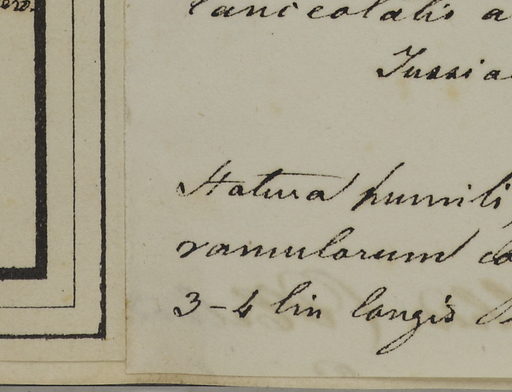 lanceolatis a
Jussia
Statura humili
ramulorum
3-4 lin longis